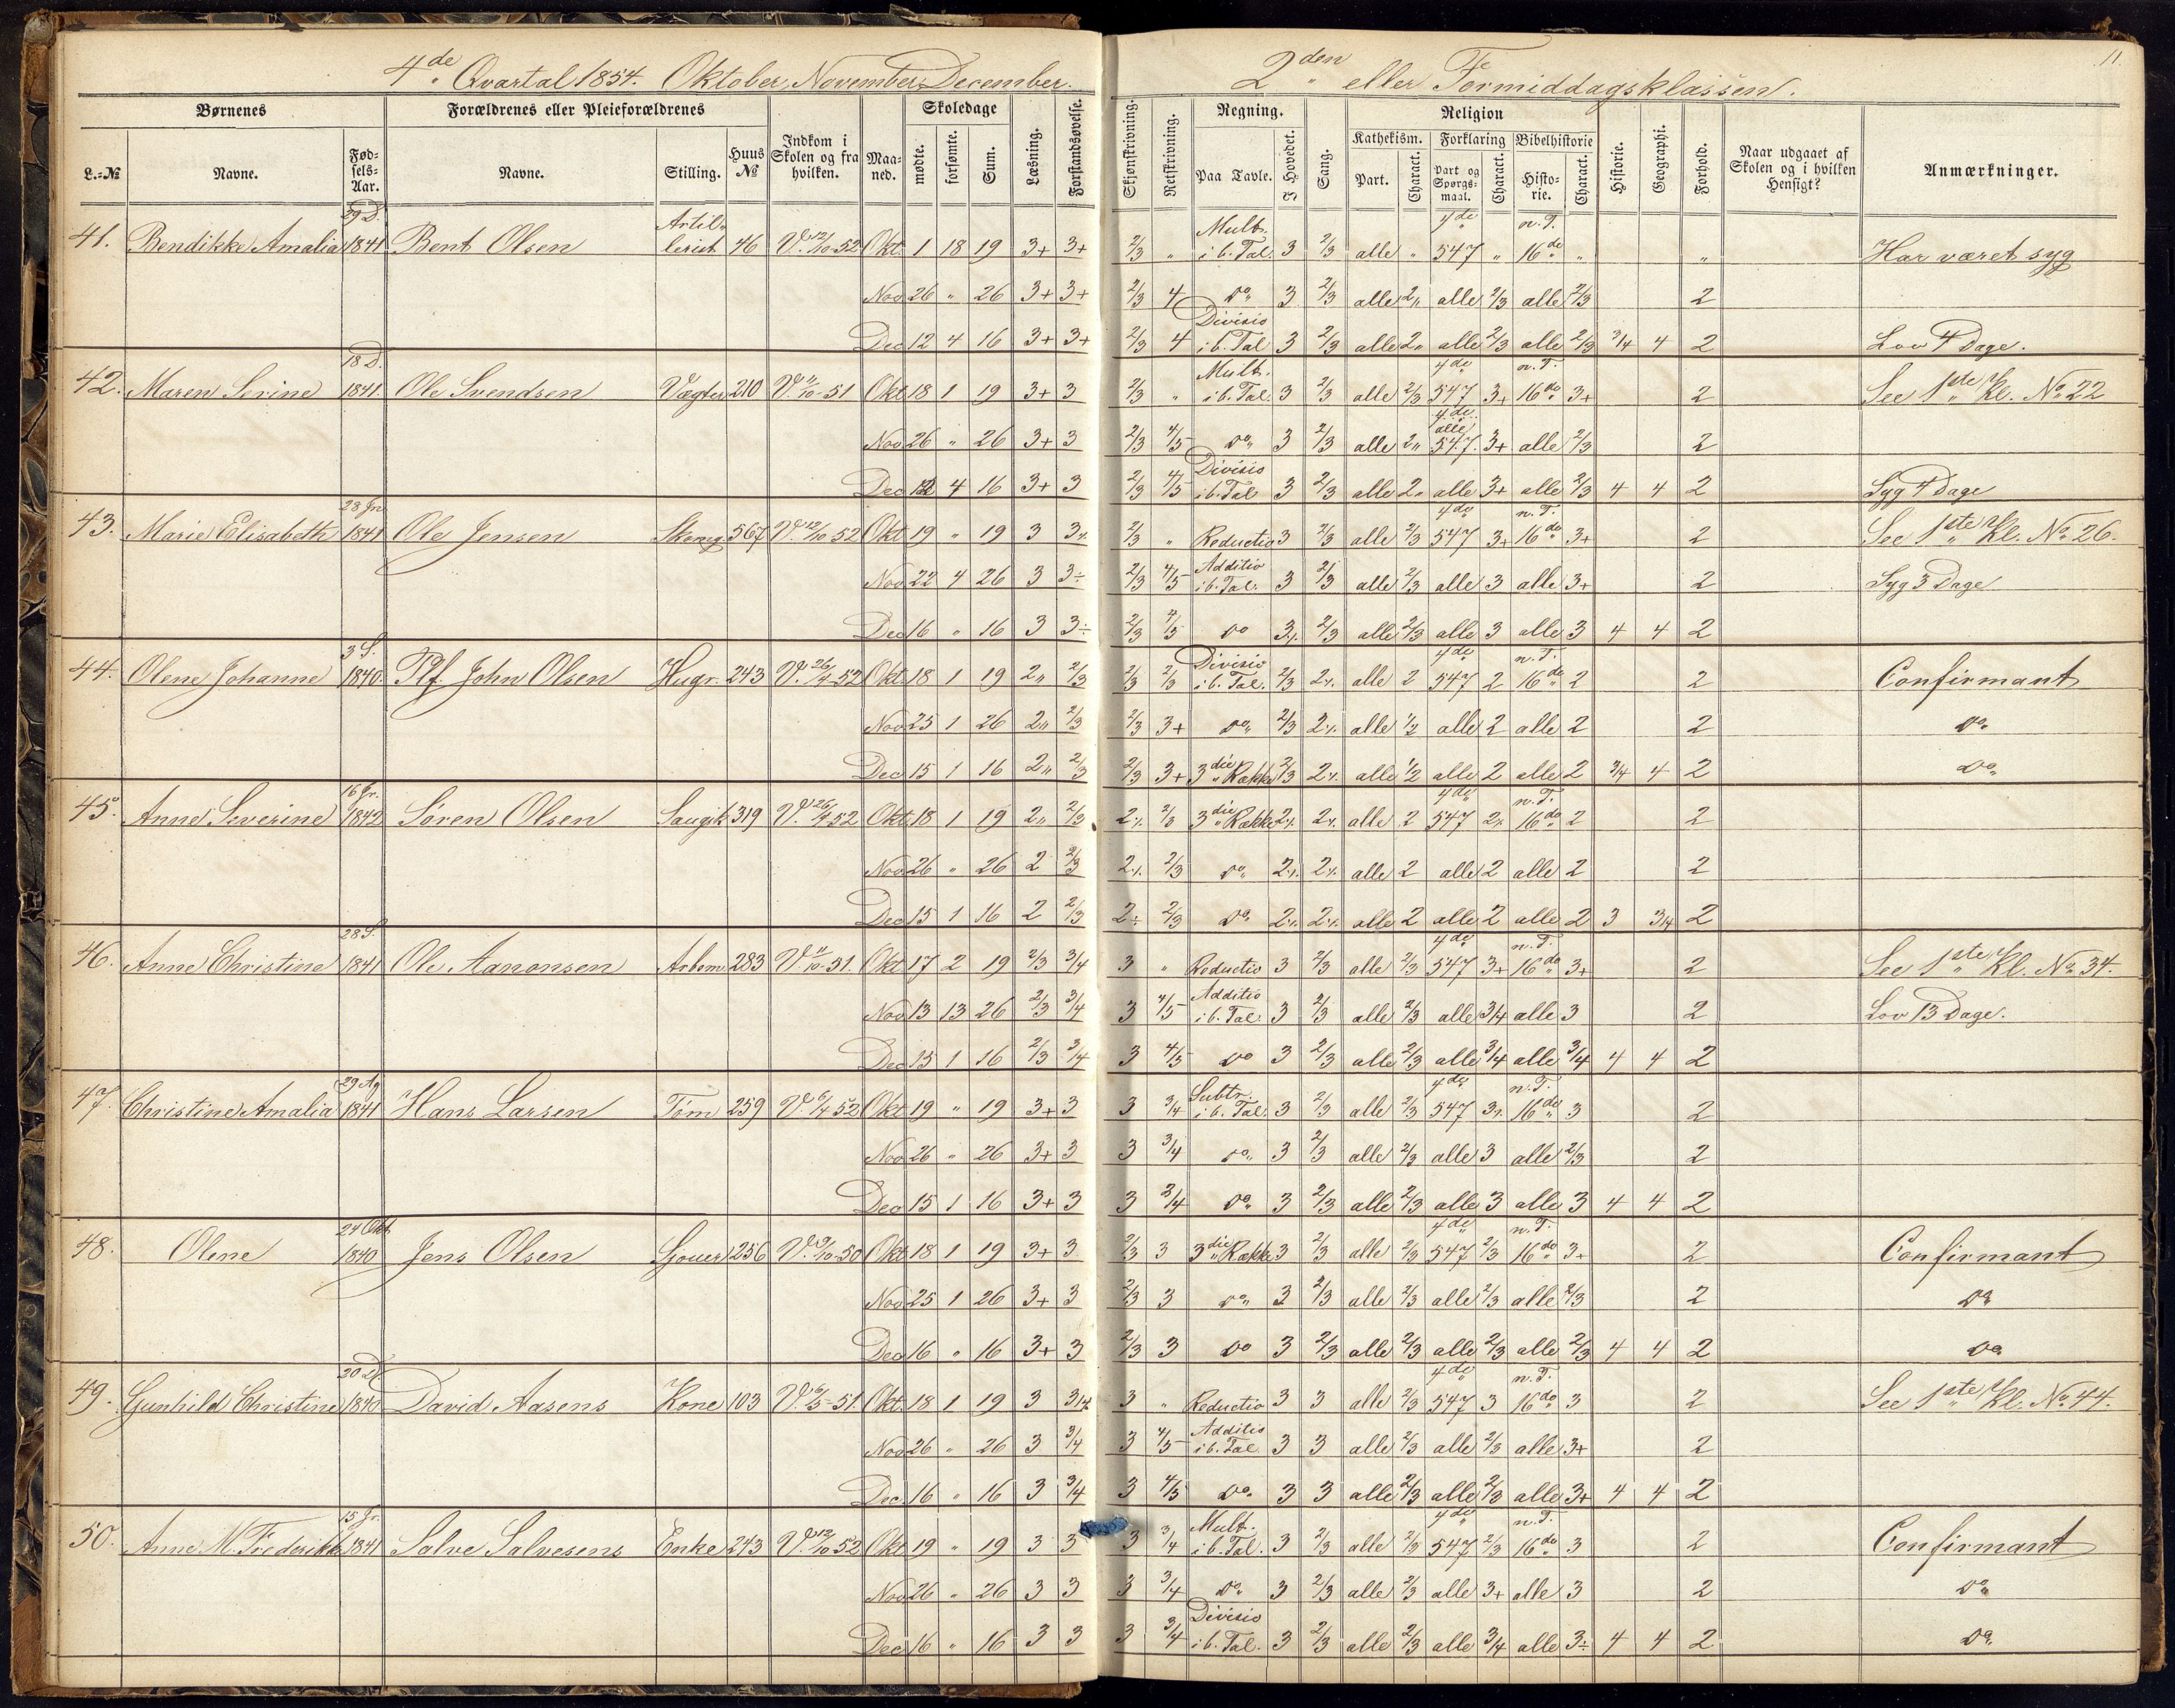 4de Qvartal 1854. Oktober, November, December.
2den eller Formiddagsklassen.
11
Børnenes
Forældrenes eller Pleieforældrenes
Indkom i Skolen og fra hvilken.
Maaned.
Skoledage
Læsning.
Forstandsøvelse.
L.-№
Navne.
Fødsels-Aar.
Navne.
Stilling.
Huus №
mødte.
forsømte.
Sum.
Skjønskrivning.
Retskrivning.
Regning.
Paa Tavle.
I Hovedet.
Sang.
Religion
Kathekism.
Forklaring
Bibelhistorie
Part.
Charact.
Part og Spørgsmaal.
Charact.
Historie.
Charact.
Historie.
Geographi.
Forhold.
Naar udgaaet af Skolen og i hvilken Hensigt?
Anmærkninger.
41. Bendikke Amalia 29 D. 1841 Bent Olsen Artillerist 46 V. 12/10-52 Okt. 1 18 19 3+ 3+ 2/3 " Mult. i b. Tal. 3 2/3 alle " 4de 547 " n. T. 16de " " Har været syg
Nov 26 " 26 3+ 3+ 2/3 4 do 3 2/3 alle 2" alle 2/3 alle 2/3 2
Dec 12 4 16 3+ 3+ 2/3 4 Divisio i b. Tal 3 2/3 alle 2" alle 2/3 alle 2/3 3/4 4 2 Lov 4 Dage.
42. Maren Serine 18 D. 1841. Ole Svendsen Vægter 210 V. 11/10-51 Okt 18 1 19 3+ 3 2/3 " Mult. i b. Tal. 3 2/3 alle 2/3 4de 547 3+ n. T. 16de 3+ 2 See 1ste Kl. No 22
Nov 26 " 26 3+ 3 2/3 4/5 do 3 2/3 alle 2" 4de alle 547. 3+ alle 2/3 2
Dec 12 4 16 3+ 3 2/3 4/5 Divisio i b. Tal 3 2/3 alle 2" alle 3+ alle 2/3 4 4 2 Syg 4 Dage
43. Marie Elisabeth 28 Jn 1841 Ole Jensen 567 V. 12/10 52 Okt 19 " 19 3 3÷ 2/3 " Reductio 3 2/3 alle 2/3 4de 547 3+ n. T. 16de 3+ 2 See 1ste Kl. No 26.
Nov. 22 4 26 3 3÷ 2/3 4/5 Additio i b. Tal. 3 2/3 alle 2/3 alle 3 alle 3+ 2 Syg 3 Dage
Dec 16 " 16 3 3÷ 2/3 4/5 do 3÷ 2/3 alle 2/3 alle 3 alle 3 4 4 2
44. Olene Johanne 3 S. 1840. Plf. John Olsen Hugr. 243 V. 26/4-52 Okt. 18 1 19 2" 2/3 2/3 2/3 Divisio i b. Tal. 2/3 2÷ alle 2 4de 547 2 n. T. 16de 2 2 Confirmant
Nov 25 1 26 2" 2/3 2/3 3+ do 2/3 2÷ alle 1/2 alle 2 alle 2 2 do
Dec 15 1 16 2" 2/3 2/3 3+ 3die Række 2/3 2÷ alle 1/2 alle 2 alle 2 3/4 4 2 do
45. Anne Severine 16 Jr. 1842 Søren Olsen 319 V. 26/4 52 Okt. 18 1 19 2" 2/3 2÷ 2/3 3die Række 2÷ 2÷ alle 2 4de 547 2÷ n. T. 16de 2 2
Nov 26 " 26 2 2/3 2÷ 2/3 do 2÷ 2÷ alle 2 alle 2 alle 2 2
Dec 15 1 16 2 2/3 2÷ 2/3 do 2÷ 2÷ alle 2 alle 2 alle 2 3 3/4 2
46. Anne Christine 28 S. 1841 Ole Aanonsen Arbsm. 283 V. 11/10-51. Okt 17 2 19 2/3 3/4 3 " Reductio 3 2/3 alle 2/3 4de 547 3+ n. T. 16de 3+ 2 See 1ste Kl. No 34.
Nov 13 13 26 2/3 3/4 3 4/5 Additio i b. Tal. 3 2/3 alle 2/3 alle 3/4 alle 3 2 Lov 13 Dage.
Dec 15 1 16 2/3 3/4 3 4/5 do 3 2/3 alle 2/3 alle 3/4 alle 3/4 4 4 2
47. Christine Amalia 29 Ag 1841 Hans Larsen Tøm 259 V. 6/4 52 Okt 19 " 19 3+ 3 3 3/4 Subtr. i b. Tal. 3 2/3 alle 2/3 4de 547 3÷ n. T. 16de 3 2
Nov 26 " 26 3+ 3 3 3/4 do 3 2/3 alle 2/3 alle 3 alle 2/3 2
Dec 15 1 16 3+ 3 3 3/4 do 3 2/3 alle 2/3 alle 3 alle 3 4 4 2
48. Olene 24 Okt. 1840 Jens Olsen Sjouer 256 V. 9/10-50 Okt 18 1 19 3+ 3 2/3 3 3die Række 3 2/3 alle 2/3 4de 547 2/3 n. T. 16de 3+ 2 Confirmant
Nov 25 1 26 3+ 3 2/3 3 do 3 2/3 alle 2/3 alle 2/3 alle 2/3 2 do
Dec 16 " 16 3+ 3 2/3 3 do 3 2/3 alle 2/3 alle 2/3 alle 2/3 4 4 2 do
49. Gunhild Christine 20 D. 1840 David Aasens Kone 103 V. 6/5-51. Okt. 18 1 19 3 3/4 3 " Reductio 3 3 alle 2/3 4de 547 3 n. T. 16de 3 2 See 1ste Kl. No 44.
Nov 26 " 26 3 3/4 3 4/5 Additio i b. Tal 3 3 alle 2/3 alle 2/3 alle 3+ 2
Dec. 16 " 16 3 3/4 3 4/5 do 3 3 alle 2/3 alle 2/3 alle 3+ 4 4 2
50. Anne M. Frederikke 15 Jr. 1841 Salve Salvesens Enke 243 V. 12/10 52 Okt 19 " 19 3 3 3 3/4 Mult. i b. Tal. 3 2/3 alle 2/3 4de 547 2/3 n. T. 16de 3 2 Confirmant
Nov 26 " 26 3 3 3 3/4 do 3 2/3 alle 2/3 alle 3+ alle 3 2 do
Dec 16 " 16 3 3 3 3/4 Divisio i b. Tal. 3 2/3 alle 2/3 alle 3/4 alle 3÷ 4 4 2 do